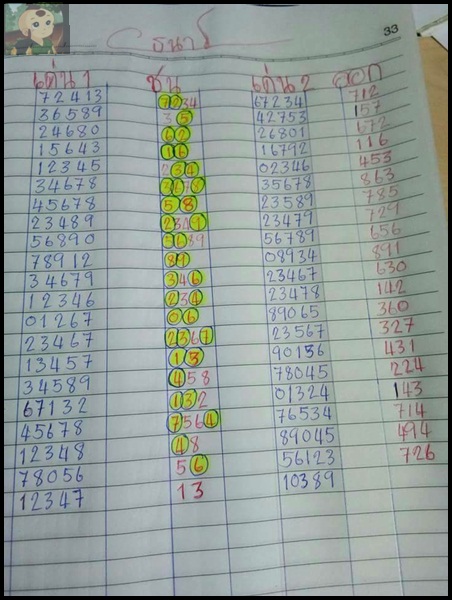 33
ธนาโ
เด่น 1 ชน เด่น 2 ออก
72413 7234 67234 712
36589 35 42753 157
24680 62 26801 672
15643 16 16792 116
12345 234 02346 453
34678 3678 35678 863
45678 58 23589 785
23489 2349 23479 729
56890 5689 56789 656
78912 89 08934 891
34679 346 23467 630
12346 234 23478 142
01267 06 89065 360
23467 2367 23567 327
13457 13 90156 431
34589 458 78045 224
67132 132 01324 143
45678 7564 76534 714
12348 48 89045 494
78056 56 56123 726
12347 13 10389